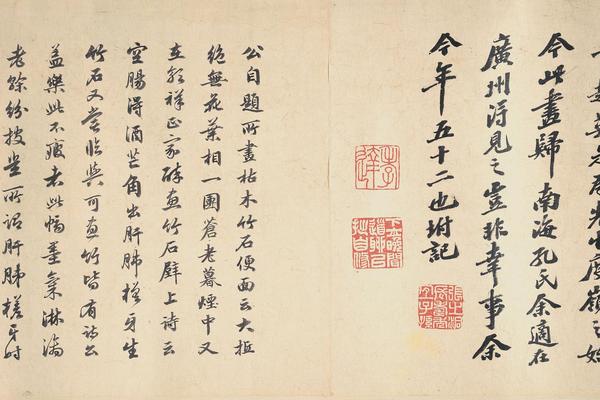 度嶺之始
今此畫歸南海孔氏余適在
廣州得見之豈非幸事余
今年五十二也坿記
公自題所畫枯木竹石便面云大抵
絕無花葉相一團蒼老暮煙中又
在郭祥正家醉畫竹石壁上詩云
空腸得酒芒角出肝肺槎牙生
竹石又嘗臨與可畫竹皆有詩公
蓋樂此不疲者此幅墨氣淋漓
老榦紛披豈所謂肝肺槎牙時